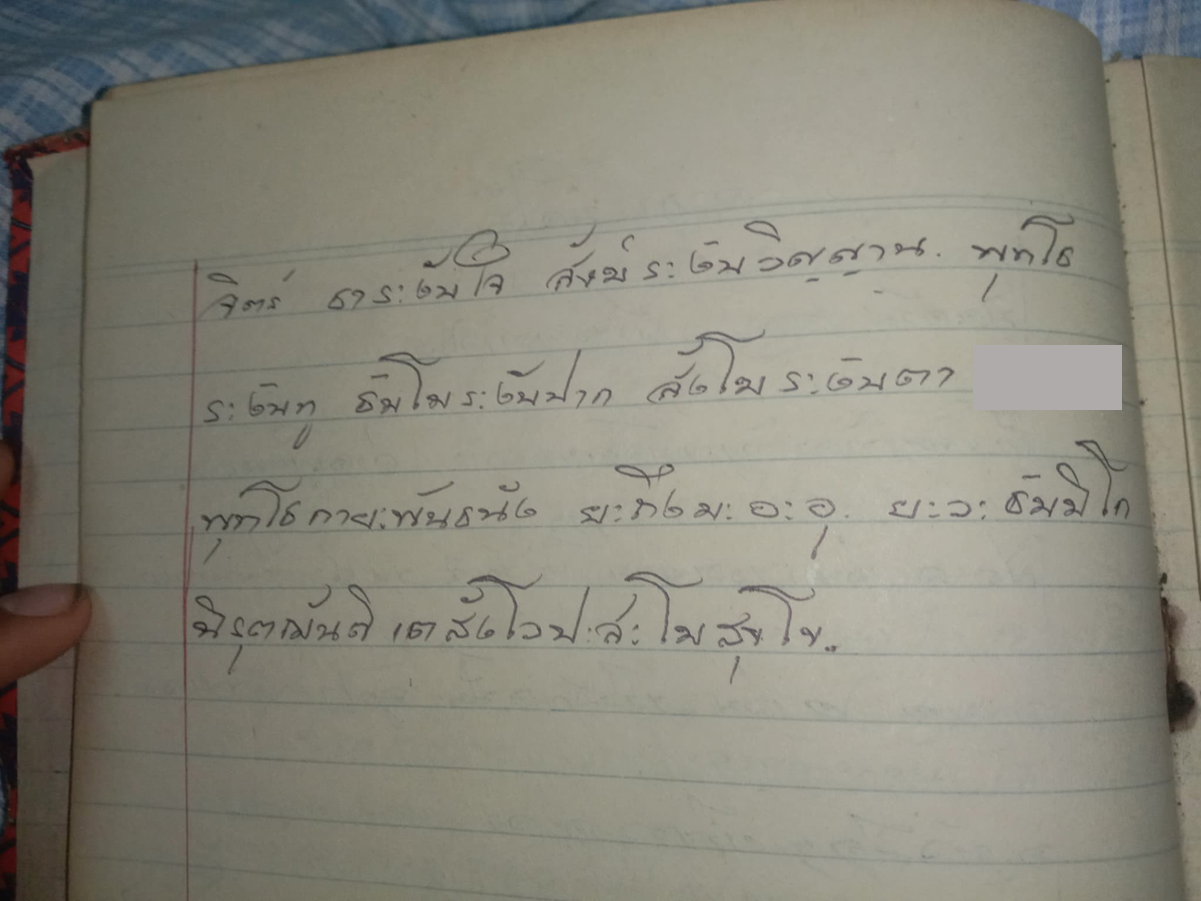 จิตร์ ธาระงับใจ สังฆ์ระงับวิญญาน. พุทโธ
ระงับหู ธัมโมระงับปาก สังโฆระงับตา
พุทโธกายะพันธนัง ยะถิงมะ อะอุ. ยะวะธัมมิโก
นิรุตฌันติ เตสังโวปะสะโมสุขโข..